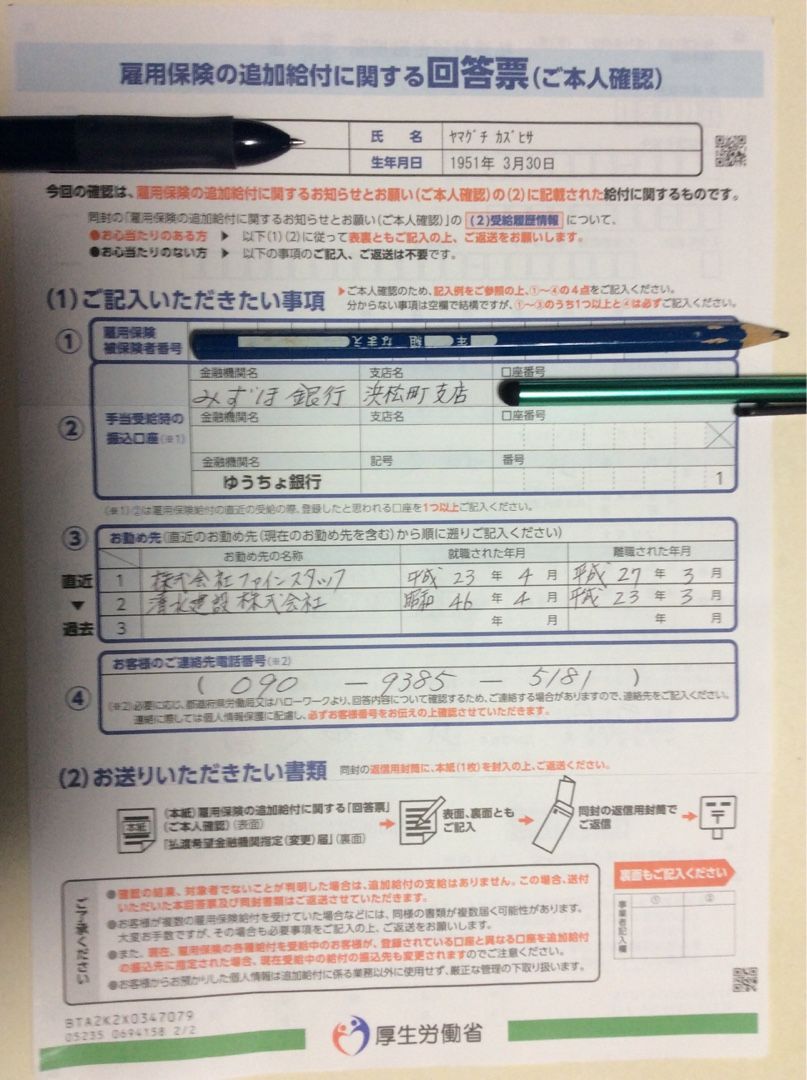 雇用保険の追加給付に関する回答票(ご本人確認)
氏　名 ﾔﾏｸﾞﾁ ｶｽﾞﾋｻ
生年月日 1951年 3月30日
今回の確認は、雇用保険の追加給付に関するお知らせとお願い(ご本人確認)の(2)に記載された給付に関するものです。
同封の「雇用保険の追加給付に関するお知らせとお願い(ご本人確認)」の (2)受給履歴情報 について、
●お心当たりのある方 ▶ 以下(1)(2)に従って表裏ともご記入の上、ご返送をお願いします。
●お心当たりのない方 ▶ 以下の事項のご記入、ご返送は不要です。
(1)ご記入いただきたい事項
▶ご本人確認のため、記入例をご参照の上、①〜④の4点をご記入ください。
分からない事項は空欄で結構ですが、①〜③のうち1つ以上と④は必ずご記入ください。
① 雇用保険
被保険者番号
年 組 なまえ
金融機関名 支店名 口座番号
みずほ銀行 浜松町支店
② 手当受給時の
振込口座(※1)
金融機関名 支店名 口座番号
金融機関名 記号 番号
ゆうちょ銀行 1
(※1)②は雇用保険給付の直近の受給の際、登録したと思われる口座を1つ以上ご記入ください。
③ お勤め先(直近のお勤め先(現在のお勤め先を含む)から順に遡りご記入ください)
お勤め先の名称 就職された年月 離職された年月
直近 1 株式会社ファインスタッフ 平成 23 年 4 月 平成 27 年 3 月
▼ 2 清水建設株式会社 昭和 46 年 4 月 平成 23 年 3 月
過去 3 年 月 年 月
④ お客様のご連絡先電話番号(※2)
( 090 － 9385 － 5181 )
(※2)必要に応じ、都道府県労働局又はハローワークより、回答内容について確認するため、ご連絡する場合がありますので、連絡先をご記入ください。
連絡に際しては個人情報保護に配慮し、必ずお客様番号をお伝えの上確認させていただきます。
(2)お送りいただきたい書類 同封の返信用封筒に、本紙(1枚)を封入の上、ご返送ください。
本紙
(本紙)雇用保険の追加給付に関する「回答票」
(ご本人確認)(表面)
「払渡希望金融機関指定(変更)届」(裏面)
表面、裏面とも
ご記入
同封の返信用封筒で
ご返信
〒
ご了承ください
●確認の結果、対象者でないことが判明した場合は、追加給付の支給はありません。この場合、送付
いただいた本回答票及び同封書類はご返送させていただきます。
●お客様が複数の雇用保険給付を受けていた場合などには、同様の書類が複数届く可能性があります。
大変お手数ですが、その場合も必要事項をご記入の上、ご返送をお願いします。
●また、現在、雇用保険の各種給付を受給中のお客様が、登録されている口座と異なる口座を追加給付
の振込先に指定された場合、現在受給中の給付の振込先も変更されますのでご注意ください。
●お客様からお預かりした個人情報は追加給付に係る業務以外に使用せず、厳正な管理の下取り扱います。
裏面もご記入ください
事業者記入欄 ① ②
BTA2K2X0347079
05235 0694158 2/2
厚生労働省